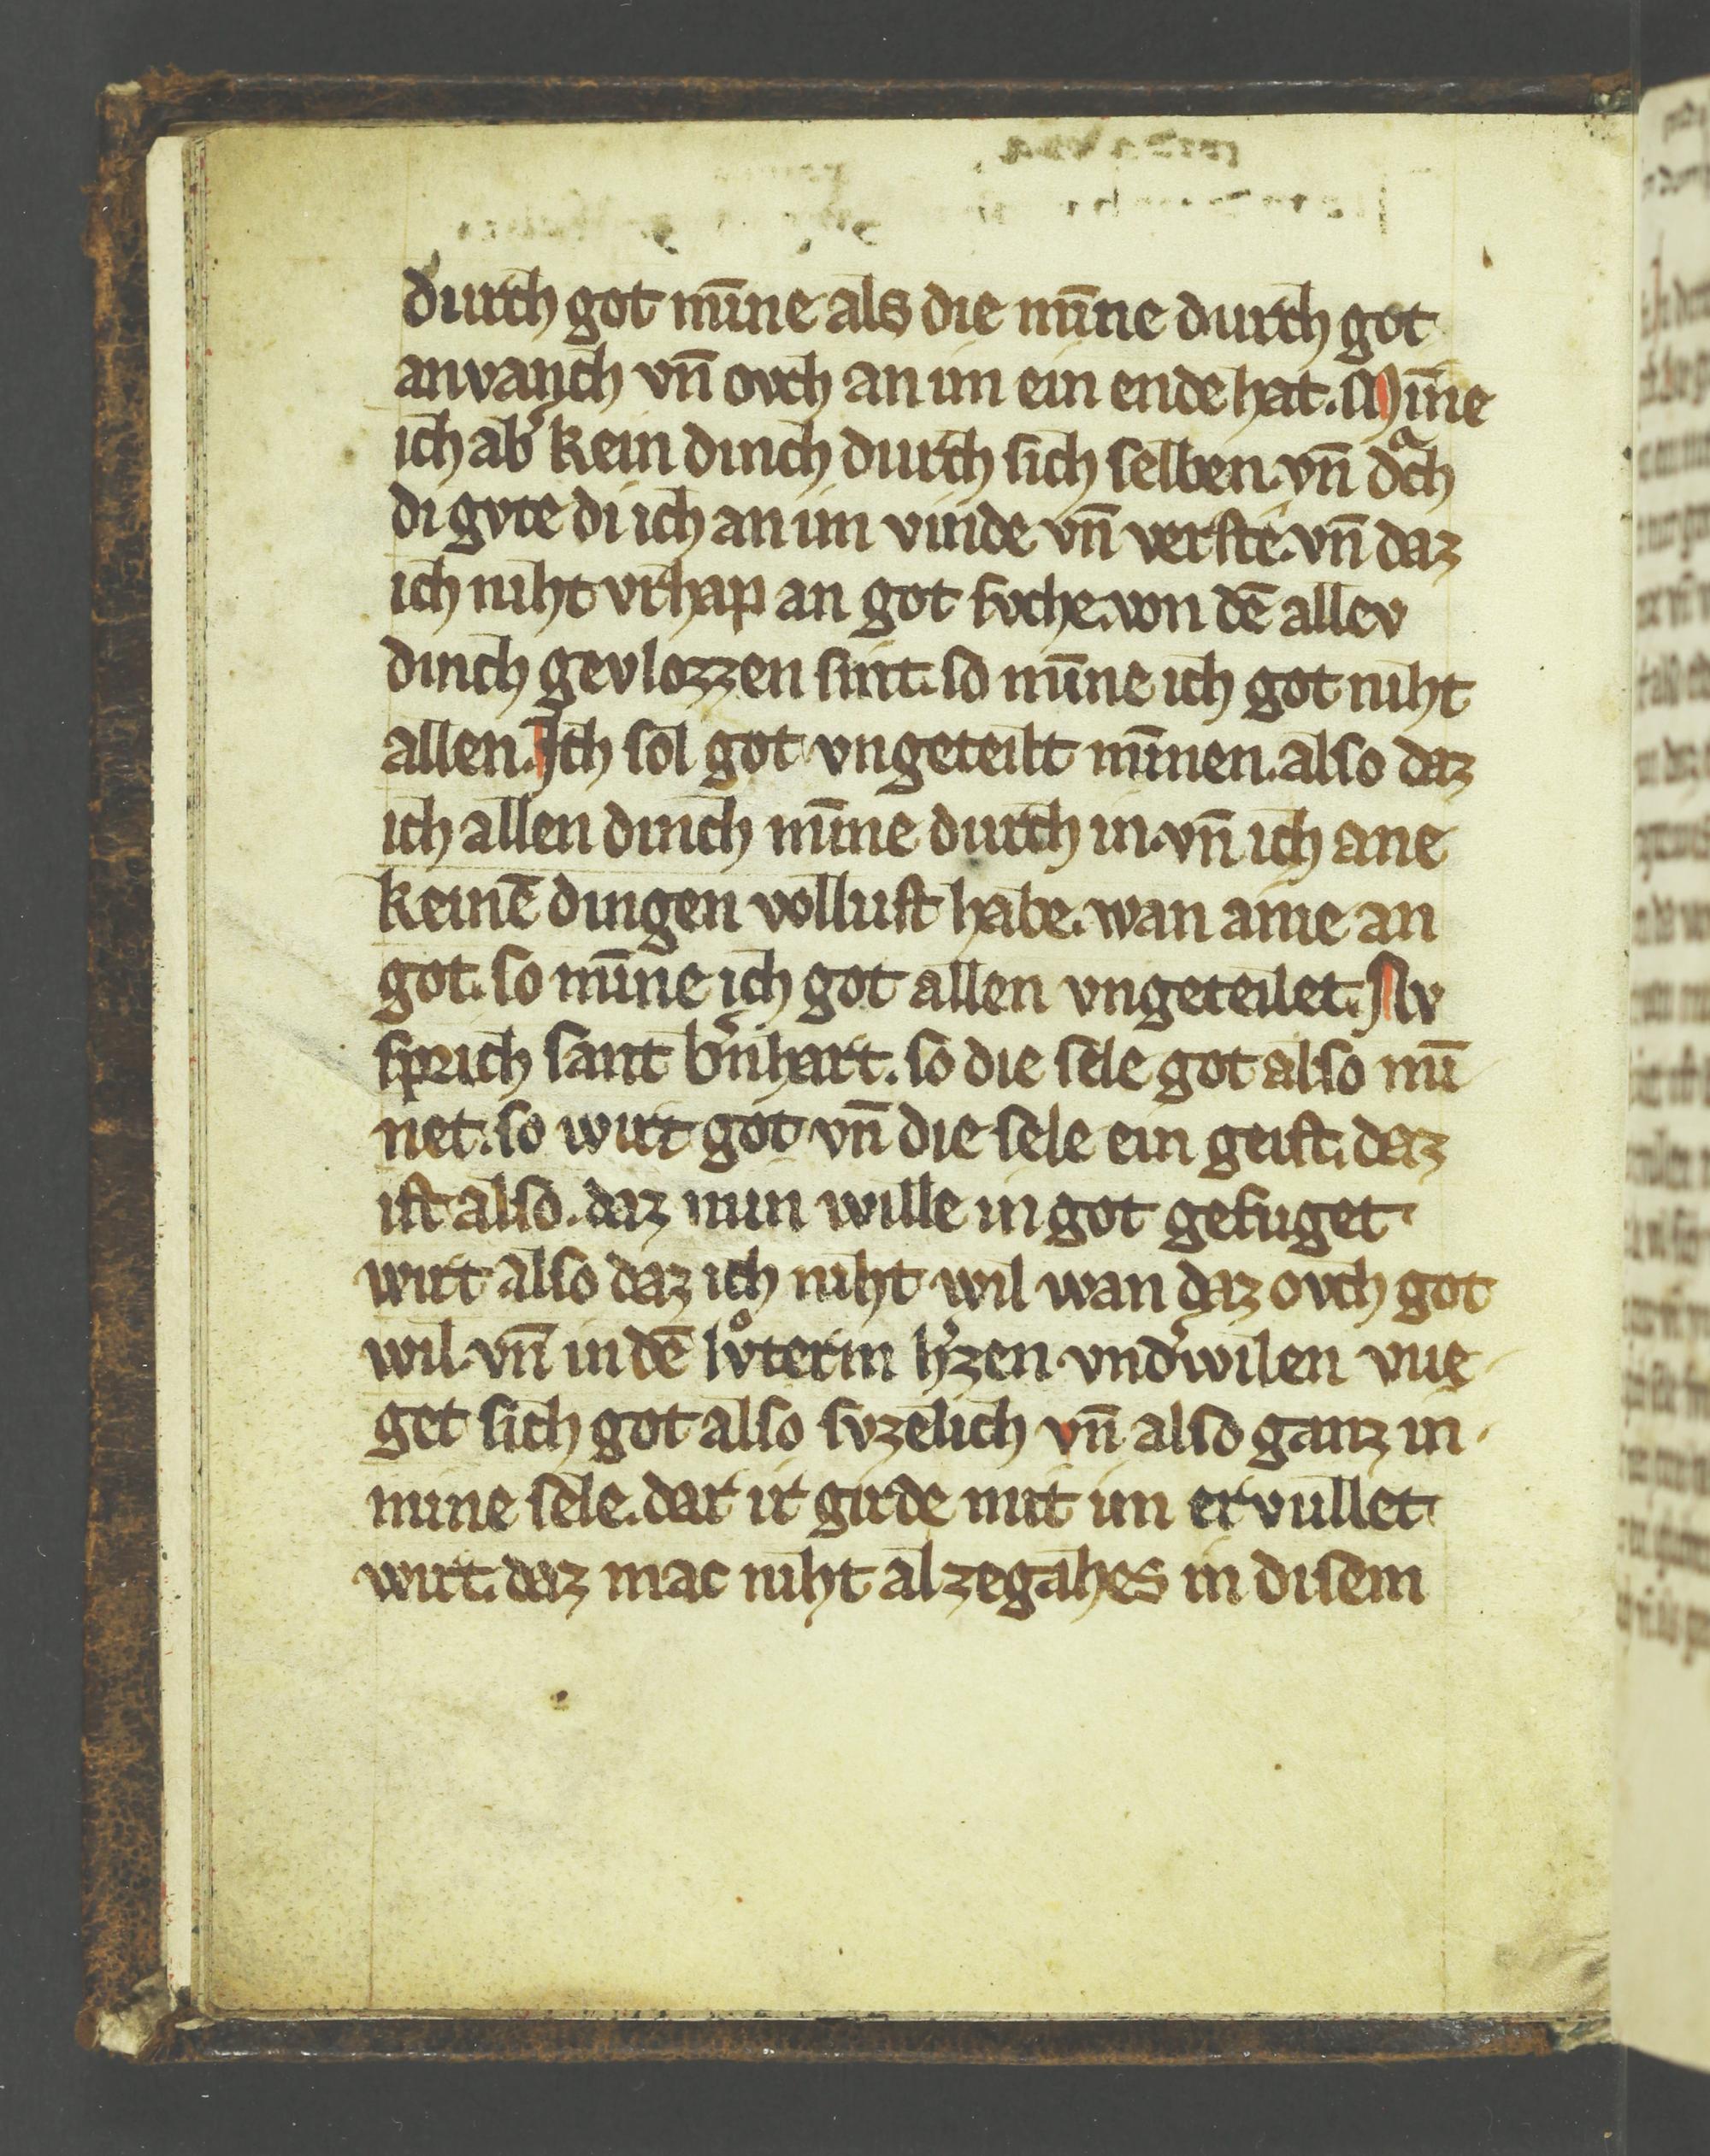 durch got mīne als die mīne durch got
anvanch vn̄ ovch an im ein ende hat. Mīne
ich ab̾ kein dinch durch sich selben. vn̄ dͣch
di gvte di ich an im vinde vn̄ verste. vn̄ daz
ich niht vrhap an got svche. von dē allev
dinch gevlozzen sint. so mīne ich got niht
allen. Ich sol got vngeteilt mīnen. also daz
ich allen dinch mīne durch in. vn̄ ich ane
keinē dingen vollust habe. wan anie an
got. so mīne ich got allen vngeteilet. Nv
sprich sant b̾nhart. so die sele got also mī
net. so wirt got vn̄ die sele ein geist. daz
ist also. daz min wille in got gefuget
wirt also daz ich niht wil wan daz ovch got
wil. vn̄ in dē lvͦterim h̾zen. vnd̾wilen vue
get sich got also svzelich vn̄ also ganz in
mine sele. dar ir girde mit im ervullet
wirt. daz mac niht alzegahes in disem